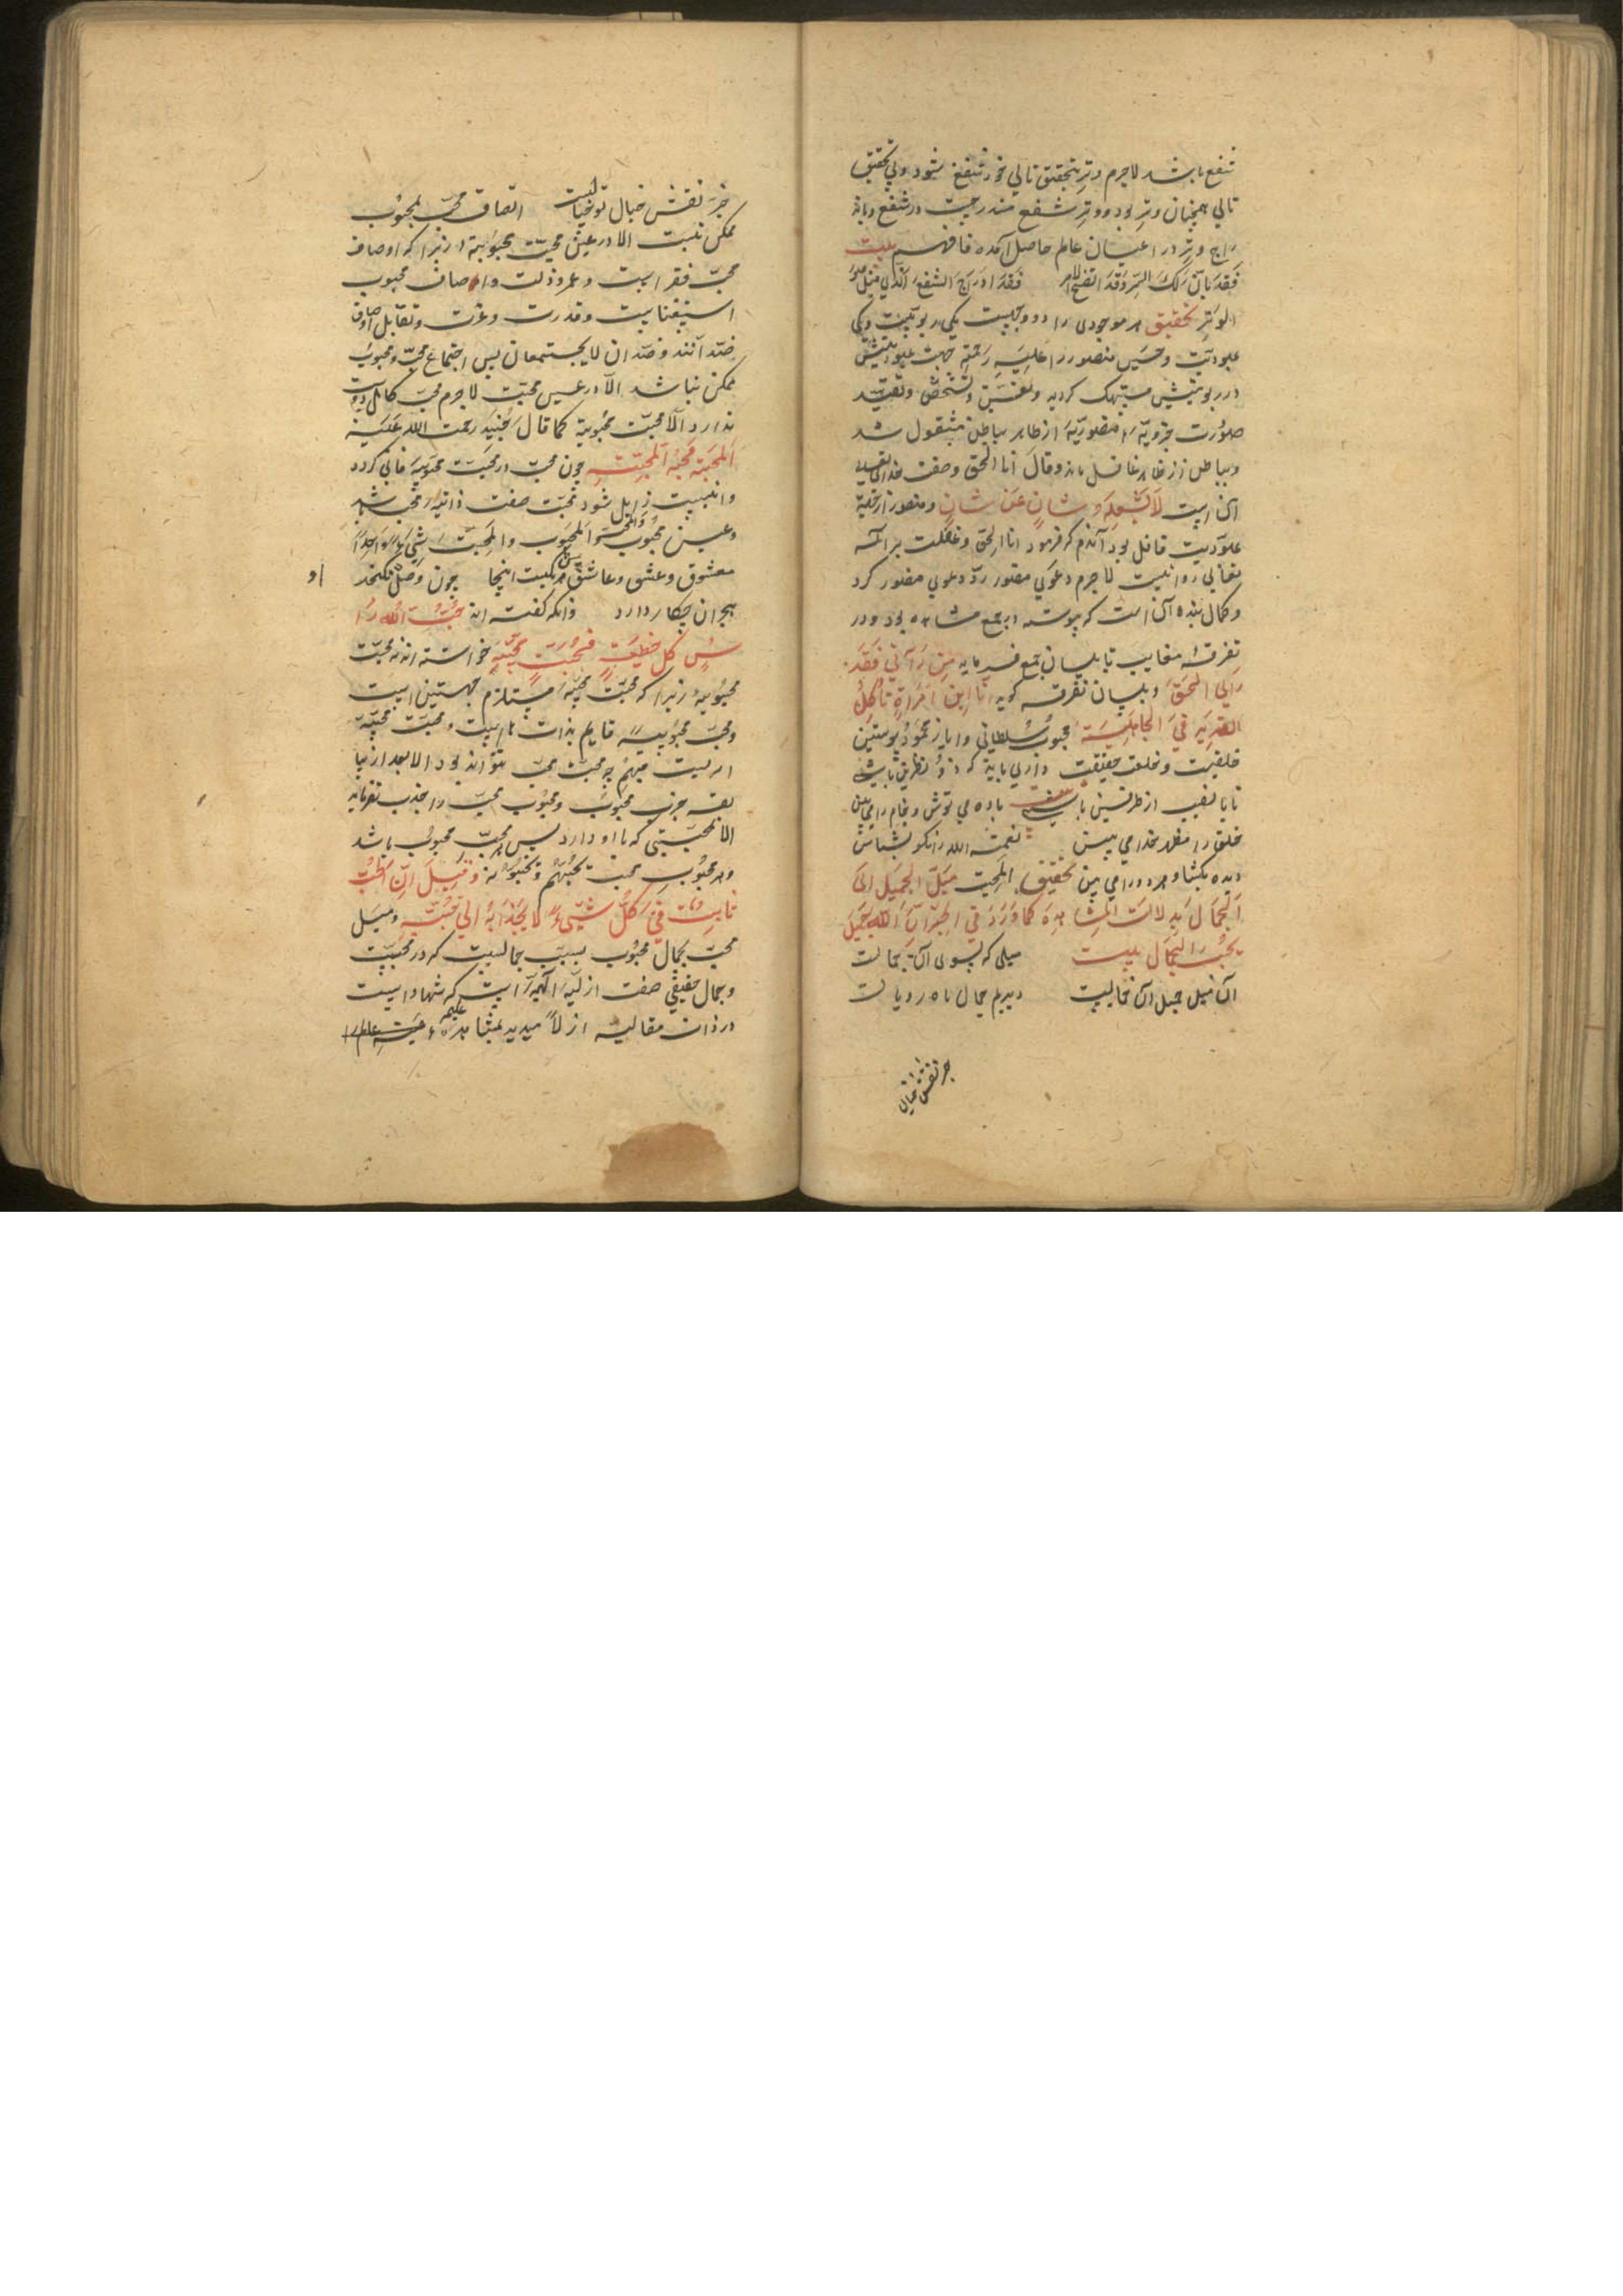 شفع باشد لاجرم وتر بتحقیق ثانی خود شفع شود و بی تحقیق
ثانی همچنان وتر بود و وتر شفع مندرجست در شفع و باند
راج وتر در اعیان عالم حاصل آمده فافهم بیت
فقد بان لک السر وقد اتضح الامر فقد ادرج الشفع الذی قیل هو
الوتر تحقیق هر موجودی را دو وجهیست یکی ربوبیت و یکی
عبودیت و حسین منصور را علیه رحمة جهت عبودیتش
در ربوبیتش مستهلک گردید و تعین و تشخص و تقید
صورت جزویه منصوریه از ظاهر بباطن منقول شد
و بباطن از ظاهر غافل ماند و قال انا الحق و صفت خدای تعالی
آن است لا یشغله شان عن شان و منصور از جهة
عبودیت غافل بود آندم که فرمود انا الحق و غفلت بر الله
تعالی روا نیست لاجرم دعوی منصور رد دعوی منصور کرد
و کمال بنده آن است که پیوسته در جمع مشاهد بود و در
تفرقه مغایب تا بلسان جمع فرماید من رآنی فقد
رای الحق و بلسان تفرقه گوید انا ابن امراة تاکل
القدید فی الجاهلیة محبوب سلطانی و ایاز محمود پوستین
خلقیت و خلعت حقیقت دارلی باید که ذو نظرین باشد
تا با نصیب از طرفین باشد بیت باده می نوش و جام را می بین
خلق را مظهر خدا می بین نعمت الله را نکو بشناس
دیده بگشا و هر دو را می بین تحقیق المحبت میل الجمیل الی
الجمال بدلالت المشاهده کما ورد فی الخبر ان الله جمیل
یحب الجمال بیت میلی که بسوی آن جمالست
آن میل جمیل آن جمالیست دیدیم جمال ماه رویانست
جز نقش خیال
جز نقش خیال تو خیالیست اتصاف محب بمحبوب
ممکن نیست الا در عین محبت محبوبیة زیرا که اوصاف
محب فقر است و عجز و ذلت و اوصاف محبوب
استغناست و قدرت و عزت و تقابل اوصاف
ضد آنند و ضدان لا یجتمعان پس اجتماع محب و محبوب
ممکن نباشد الا در عین محبت لاجرم محب کامل دوست
ندارد الا محبت محبوبیة کما قال جنید رحمت الله علیه
المحبة محبة المحبة چون محب در محبت محبوبیه فانی گردد
و انیت زایل شود محبت صفت ذاتیه محب شد
و عین محبوب و المحب و المحبوب و المحبت شیء واحدا
معشوق و عشق و عاشق هر سه یکیست اینجا چون وصل نگنجد
هجران چکار دارد و آنکه گفته اند حب الله را
س کل خطیة فحبت محبیة خواسته اند نه محبت
محبوبیه زیرا که محبت محبیه مستلزم جهتین است
و محب محبوبیه قایم بذات نیست و محبت محبیه
امریست مبهم چه محبت محب نتواند بود الا بعد از سا
بقه جذب محبوب و محبوب محب را جذب نفرماید
الا بمحبتی که با او دارد پس هر محب محبوب باشد
و هر محبوب محب یحبهم و یحبونه و قیل ان الحب
ثابت فی کل شیء لا یجذابه الی محبته و میل
محب بجمال محبوب بسبب جمالیست که در محبست
و جمال حقیقی صفت ازلیه الهیه است که شهاداست
در ذات مقالیه ازلا میدید بمشاهده علمیه
او